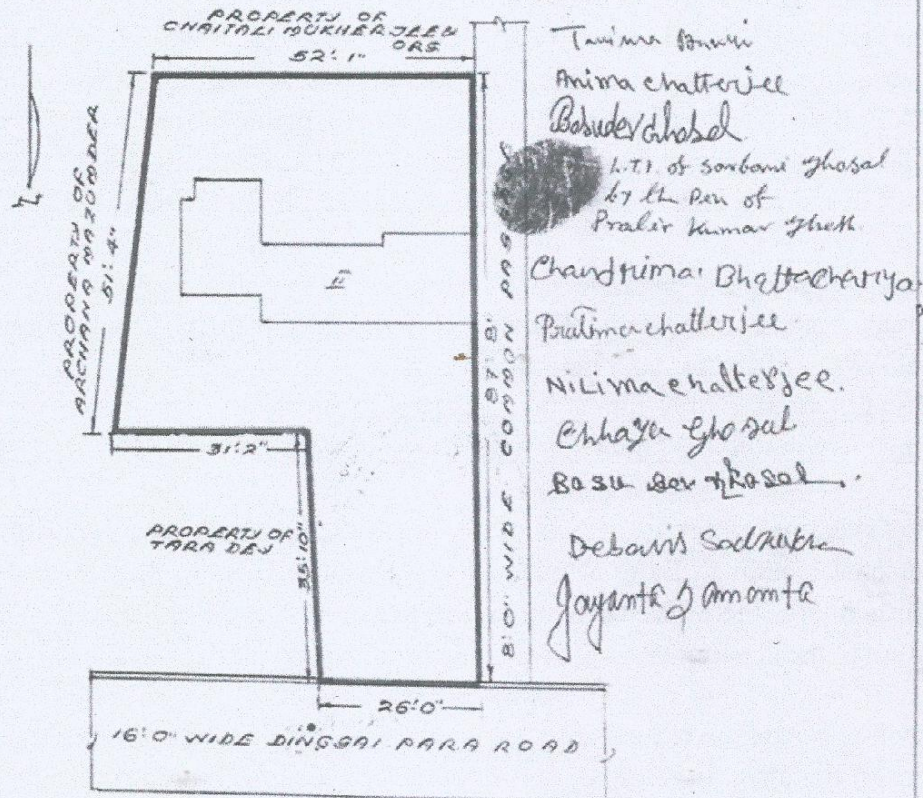 PROPERTY OF
CHAITALI MUKHERJEE &
ORS
52'-1"
PROPERTY OF
ARCHANA MAZUMDER
51'-4"
II
31'-2"
PROPERTY OF
TARA DEY
35'-10"
87'-8"
8'-0" WIDE COMMON PASSAGE
26'-0"
16'-0" WIDE DINGSAI PARA ROAD
Anima chatterjee
Basudev Ghosal
L.T.I. of Sarbani Ghosal
by the Pen of
Prabir Kumar
Chandrima Bhattachariya
Pratima chatterjee
Nilima chatterjee.
Chhaya Ghosal
Basu dev Ghosal
Jayanta